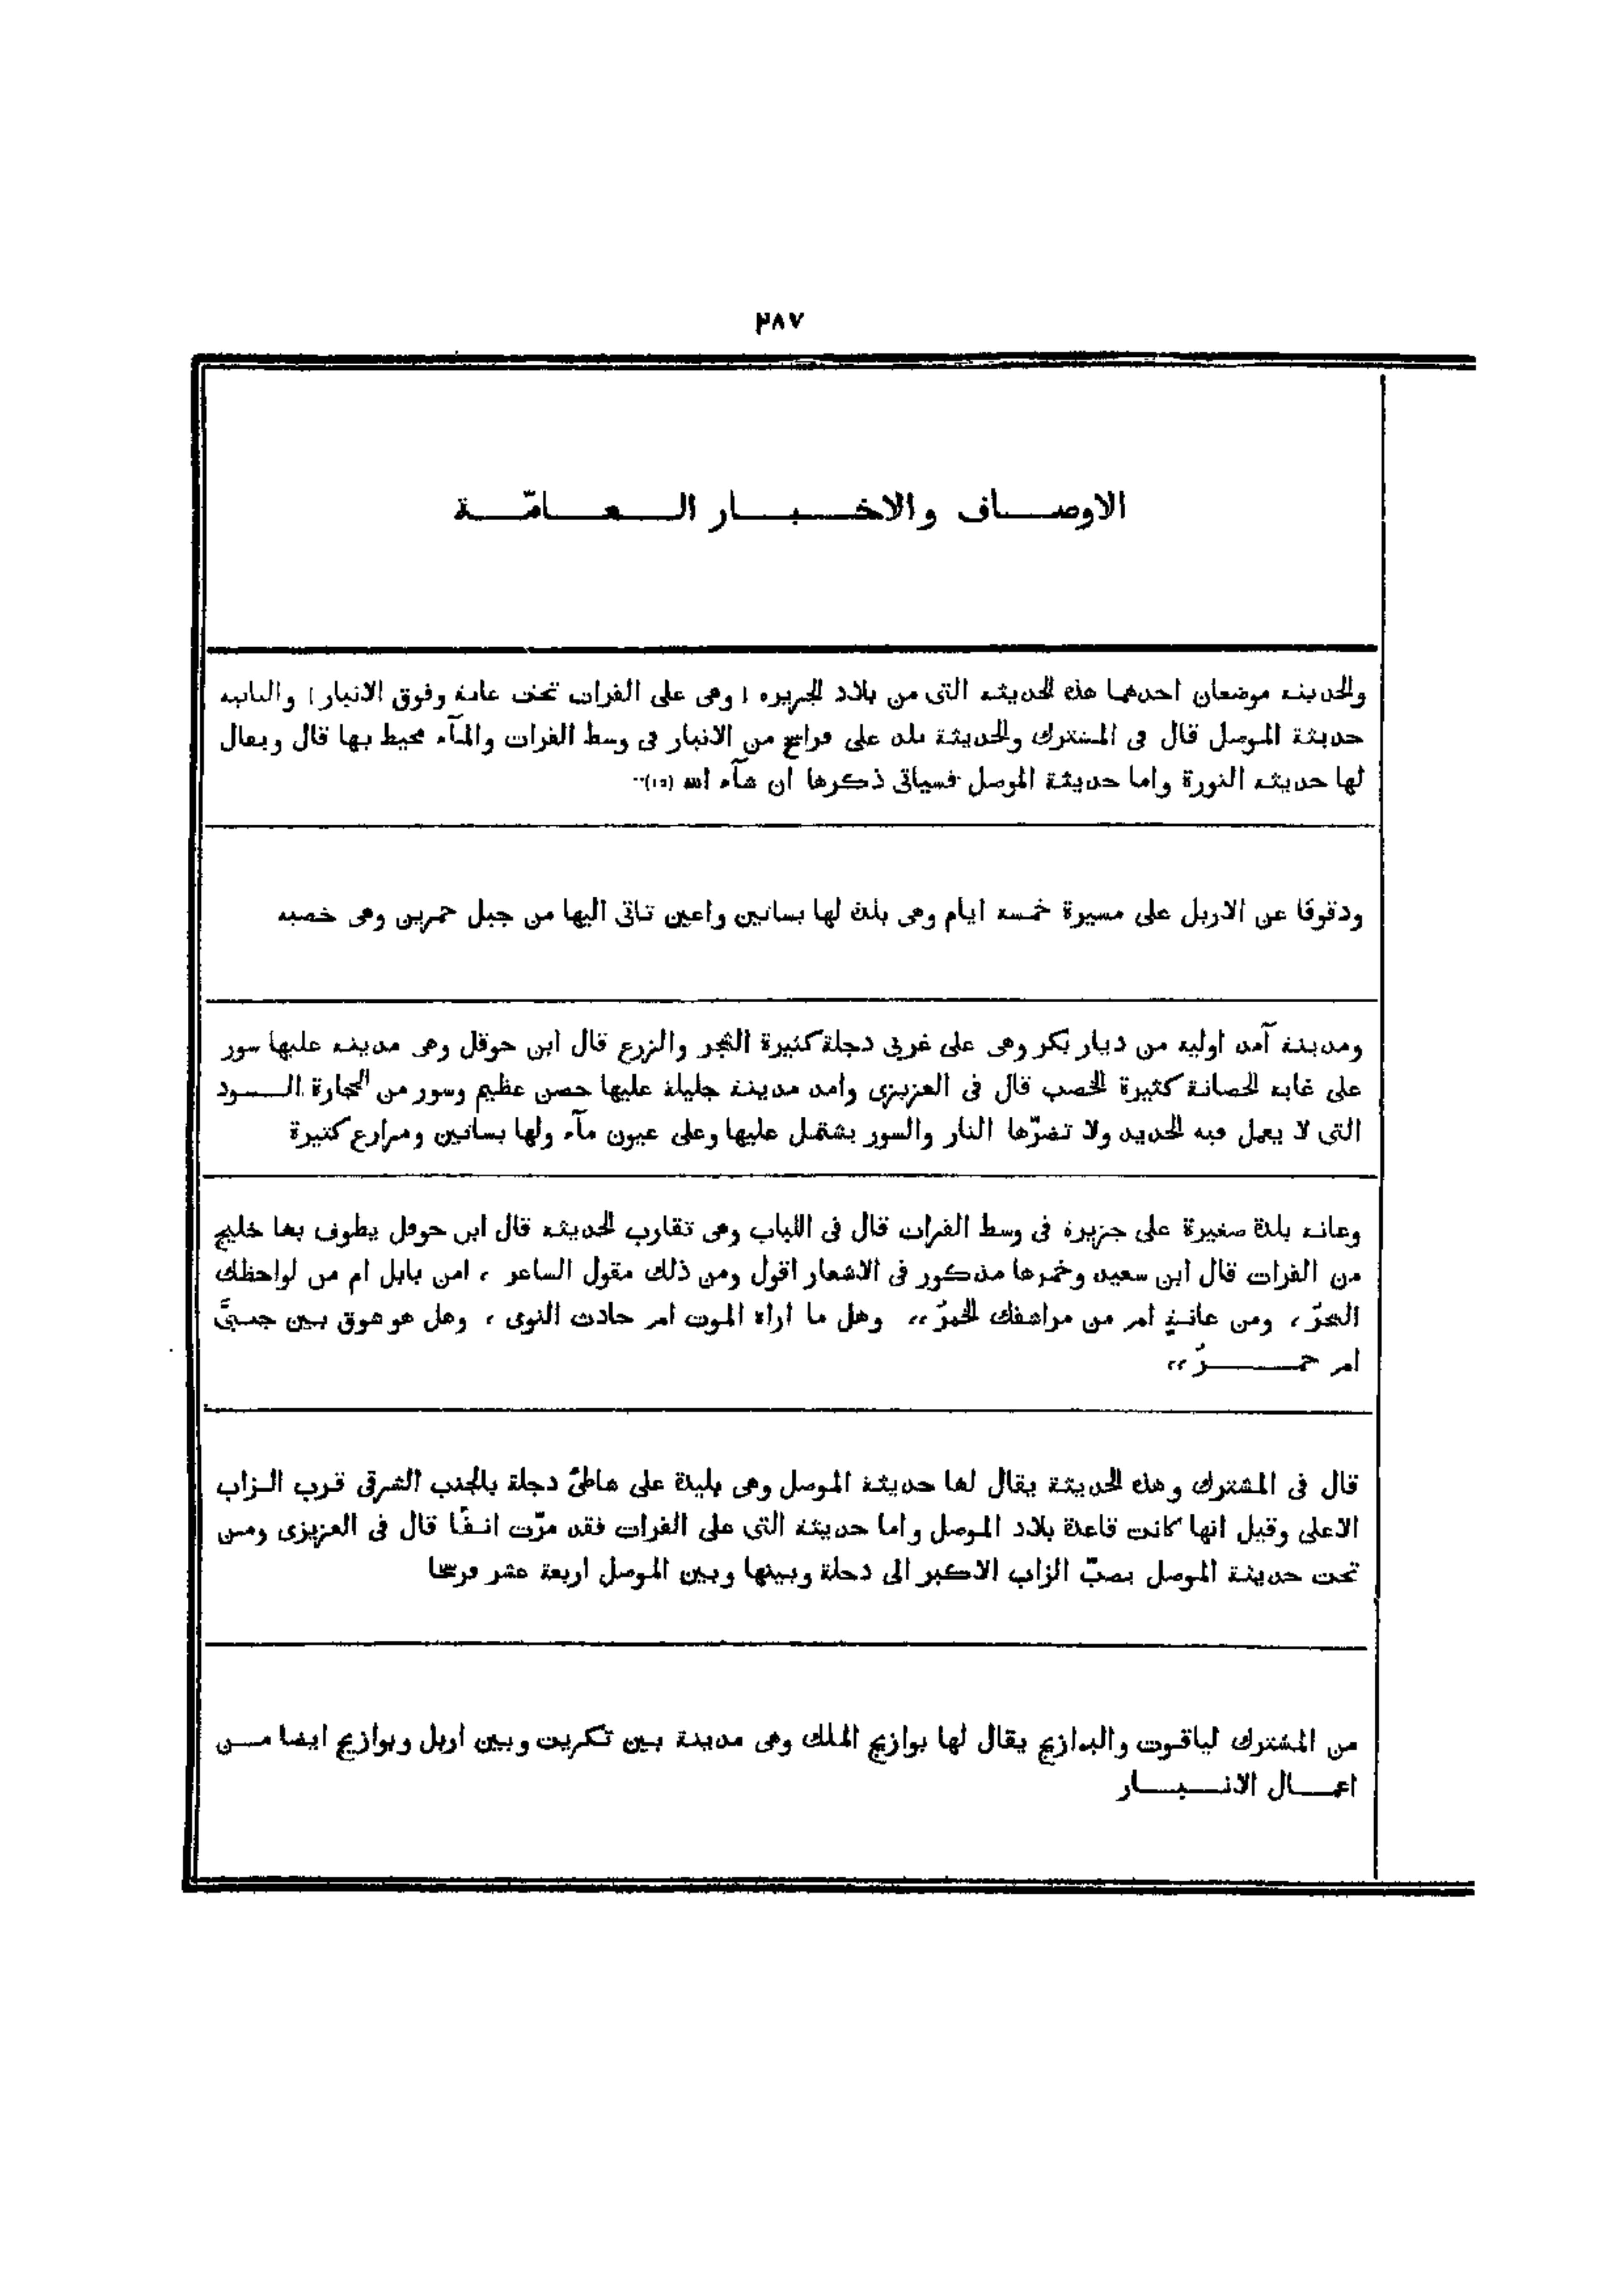 ٢٨٧
الاوصاف والاخبار العامّة
والحديثة موضعان احدهما هذه الحديثة التى من بلاد الجزيرة ( وهى على الفرات تحت عانة وفوق الانبار ) والثانية
حديثة الموصل قال فى المشترك والحديثة بلد على فراسخ من الانبار فى وسط الفرات والمآء محيط بها قال ويقال
لها حديثة النورة واما حديثة الموصل فسياتى ذكرها ان شآء الله
ودقوقا عن الاربل على مسيرة خمسة ايام وهى بلدة لها بساتين واعين تاتى اليها من جبل حمرين وهى خصبة
ومدينة آمد اولية من ديار بكر وهى على غربى دجلة كثيرة الشجر والزرع قال ابن حوقل وهى مدينة عليها سور
على غاية الحصانة كثيرة الخصب قال فى العزيزى وامد مدينة جليلة عليها حصن عظيم وسور من الحجارة السود
التى لا يعمل فيه الحديد ولا تضرّها النار والسور يشتمل عليها وعلى عيون مآء ولها بساتين ومزارع كثيرة
وعانة بلدة صغيرة على جزيرة فى وسط الفرات قال فى اللباب وهى تقارب الحديثة قال ابن حوقل يطوف بها خليج
من الفرات قال ابن سعيد وخمرها مذكور فى الاشعار اقول ومن ذلك مقول الشاعر ، امن بابل ام من لواحظك
السحرّ ، ومن عانةٍ ام من مراشفك الخمرّ ،، وهل ما اراه الموت ام حادث النوى ، وهل هو شوق بين جنبىَّ
ام جمرُ ،،
قال فى المشترك وهذه الحديثة يقال لها حديثة الموصل وهى بليدة على شاطئ دجلة بالجنب الشرقى قرب الزاب
الاعلى وقيل انها كانت قاعدة بلاد الموصل واما حديثة التى على الفرات فقد مرّت انفًا قال فى العزيزى ومن
تحت حديثة الموصل يصبّ الزاب الاكبر الى دجلة وبينها وبين الموصل اربعة عشر فرسخا
من المشترك لياقوت والبوازيج يقال لها بوازيج الملك وهى مدينة بين تكريت وبين اربل وبوازيج ايضا من
اعمال الانبار